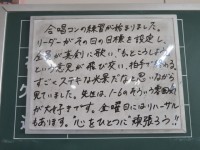 合唱コンの練習が始まりました。
リーダーがその日の目標を設定し、
全員が真剣に歌い、"もっとこうしよう"
という意見が飛び交い、拍手で終わる。
すごくステキな光景だなと思いながら
見ていました。先生は、1-6のそういう雰囲気
が大好きです。金曜日にはリハーサル
もあります。"心をひとつに"頑張ろう!!